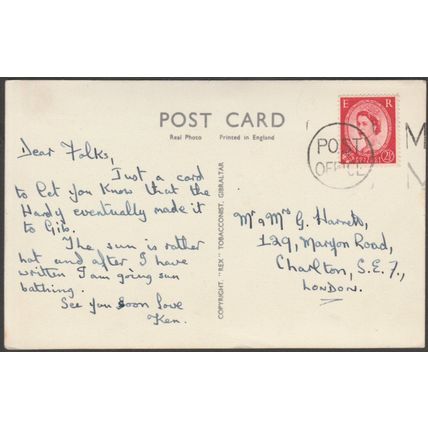 POST CARD
Real Photo Printed in England
Dear Folks,
Just a card
to let you know that the
Hardy eventually made it
to Gib.
The sun is rather
hot and after I have
written I am going sun
bathing.
See you soon love
Ken.
COPYRIGHT, "REX" TOBACCONIST, GIBRALTAR
E R
2½D
POST
OFFICE
M
Mr & Mrs G. Harnett,
129, Maryon Road,
Charlton, S.E.7.,
LONDON.